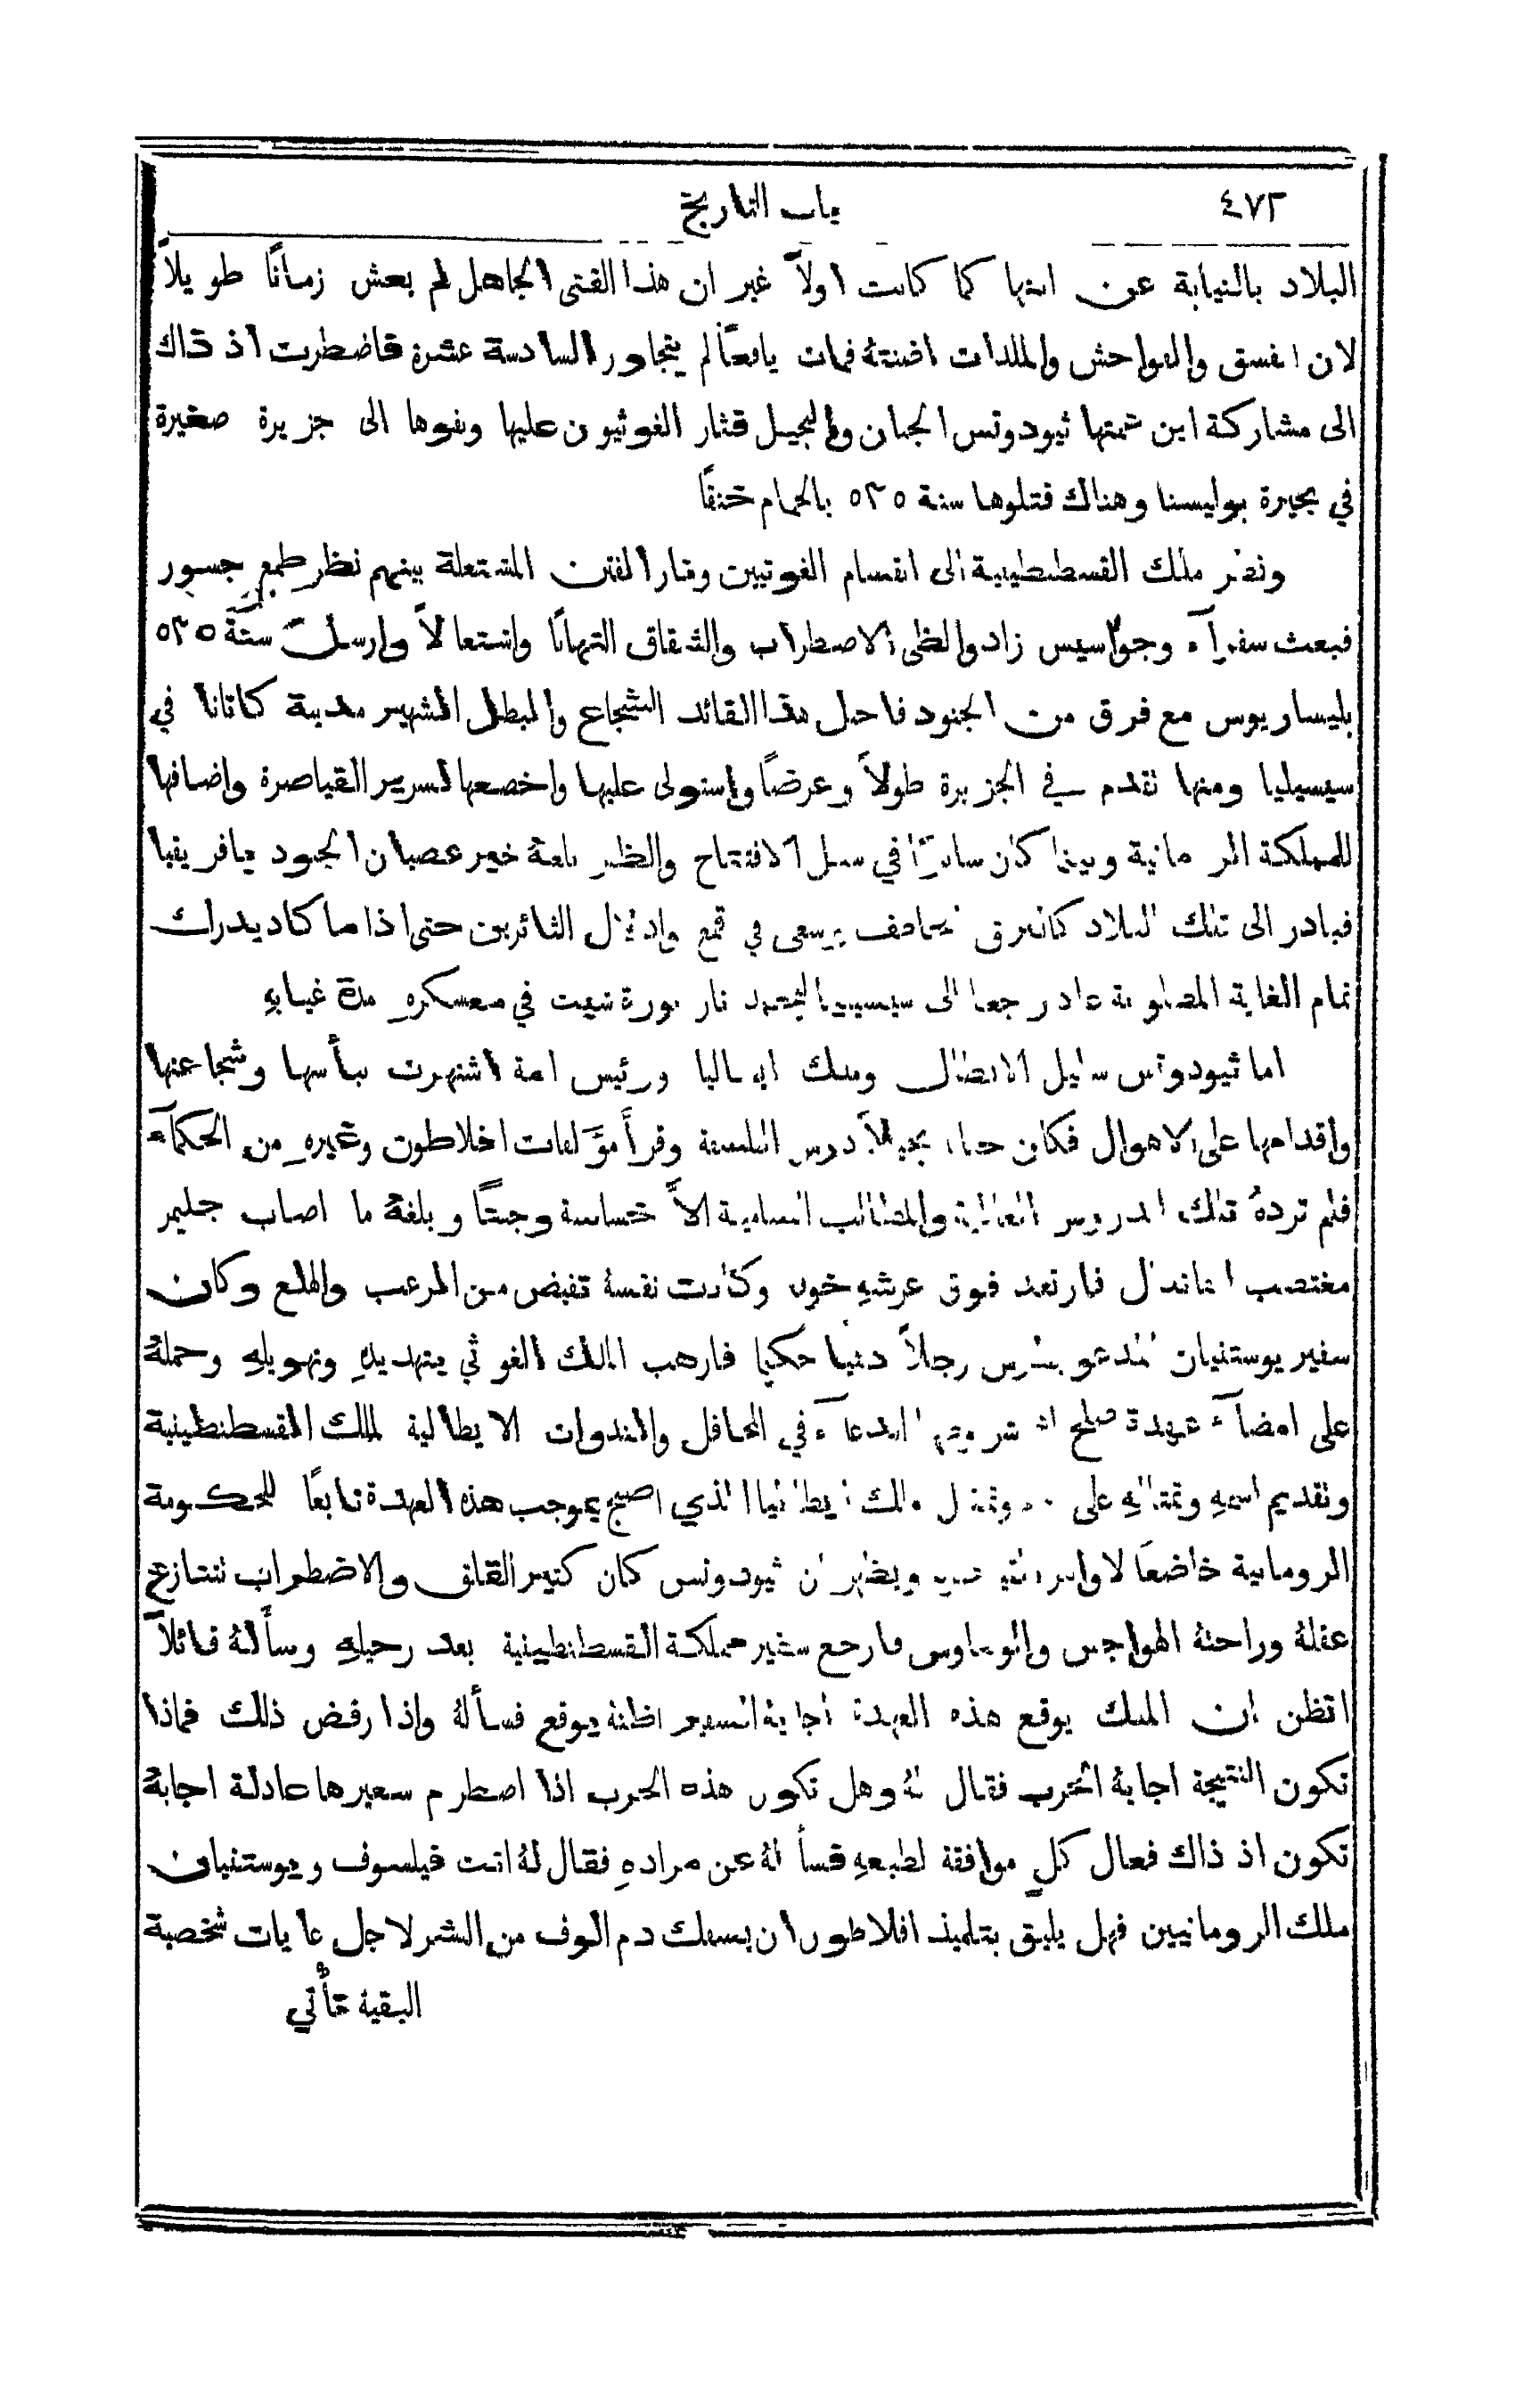 ٤٧٢ باب التاريخ
البلاد بالنيابة عن ابنها كما كانت اولاً غير ان هذا الفتى الجاهل لم يعش زمانًا طويلاً
لان الفسق والفواحش والملذات اضنته فمات يافعًا لم يتجاوز السادسة عشرة فاضطرت اذ ذاك
الى مشاركة ابن عمتها ثيودوتس الجبان والبخيل فثار الغوثيون عليها ونفوها الى جزيرة صغيرة
في بحيرة بوليسنا وهناك قتلوها سنة ٥٣٥ بالحمام خنقًا
ونظر ملك القسطنطينية الى انقسام الغوتيين ونار الفتن المشتعلة بينهم نظر طمع جسور
فبعث سفرآء وجواسيس زادوا لظى الاضطراب والشقاق التهابًا واشتعالاً وارسل سنة ٥٣٥
بليساريوس مع فرق من الجنود فاحتل هذا القائد الشجاع والبطل الشهير مدينة كاتانا في
سيسيليا ومنها تقدم في الجزيرة طولاً وعرضًا واستولى عليها واخضعها لسرير القياصرة واضافها
للمملكة الرومانية وبينما كان سائرًا في سبيل الافتتاح والظفر بلغهُ خبر عصيان الجنود بافريقيا
فبادر الى تلك البلاد كالبرق يسعى في قمع واذلال الثائرين حتى اذا ما كاد يدرك
تمام الغاية المطلوبة عاد راجعا الى سيسيليا ليخمد نار ثورة شبت في معسكرهِ مدة غيابهِ
اما ثيودوتس سليل الابطال وملك ايطاليا ورئيس امة اشتهرت ببأسها وشجاعتها
واقدامها على الاهوال فكان جبانا بخيلاً درس الفلسفة وقرأ مؤَلفات افلاطون وغيرهِ من الحكمآء
فلم تزدهُ تلك الدروس العالية والمطالب السامية الاَّ خساسة وجبنًا وبلغهُ ما اصاب جليمر
مغتصب الفاندال فارتعد فوق عرشهِ خوفا وكادت نفسهُ تفيض من الرعب والهلع وكان
سفير يوستنيان المدعو بطرس رجلاً دنيا حكيما فارهب الملك الغوثي بتهديدهِ وتهويلهِ وحملهُ
على امضآء عهدة صلح الدعآء في المحافل والندوات الايطالية لملك القسطنطينية
وتقديم اسمهِ وتمثالهِ على وتمثال ملك ايطاليا الذي اصبح بموجب هذه العهدة تابعًا للحكومة
الرومانية خاضعًا لاوامر ويظهر ان ثيودوتس كان كثير القلق والاضطراب تتنازع
عقلهُ وراحتهُ الهواجس والوساوس فارجع سفير مملكة القسطنطينية بعد رحيلهِ وسألهُ قائلاً
اتظن ان الملك يوقع هذه العهدة اجابهُ السفير اظنهُ يوقع فسألهُ واذا رفض ذلك فماذا
تكون النتيجة اجابهُ الحرب فقال لهُ وهل تكون هذه الحرب اذا اضطرم سعيرها عادلة اجابهُ
تكون اذ ذاك فعال كلٍ موافقة لطبعهِ فسألهُ عن مرادهِ فقال لهُ انت فيلسوف ويوستنيان
ملك الرومانيين فهل يليق بتلميذ افلاطون ان يسفك دم الوف من البشر لاجل غايات شخصية
البقية تأتي